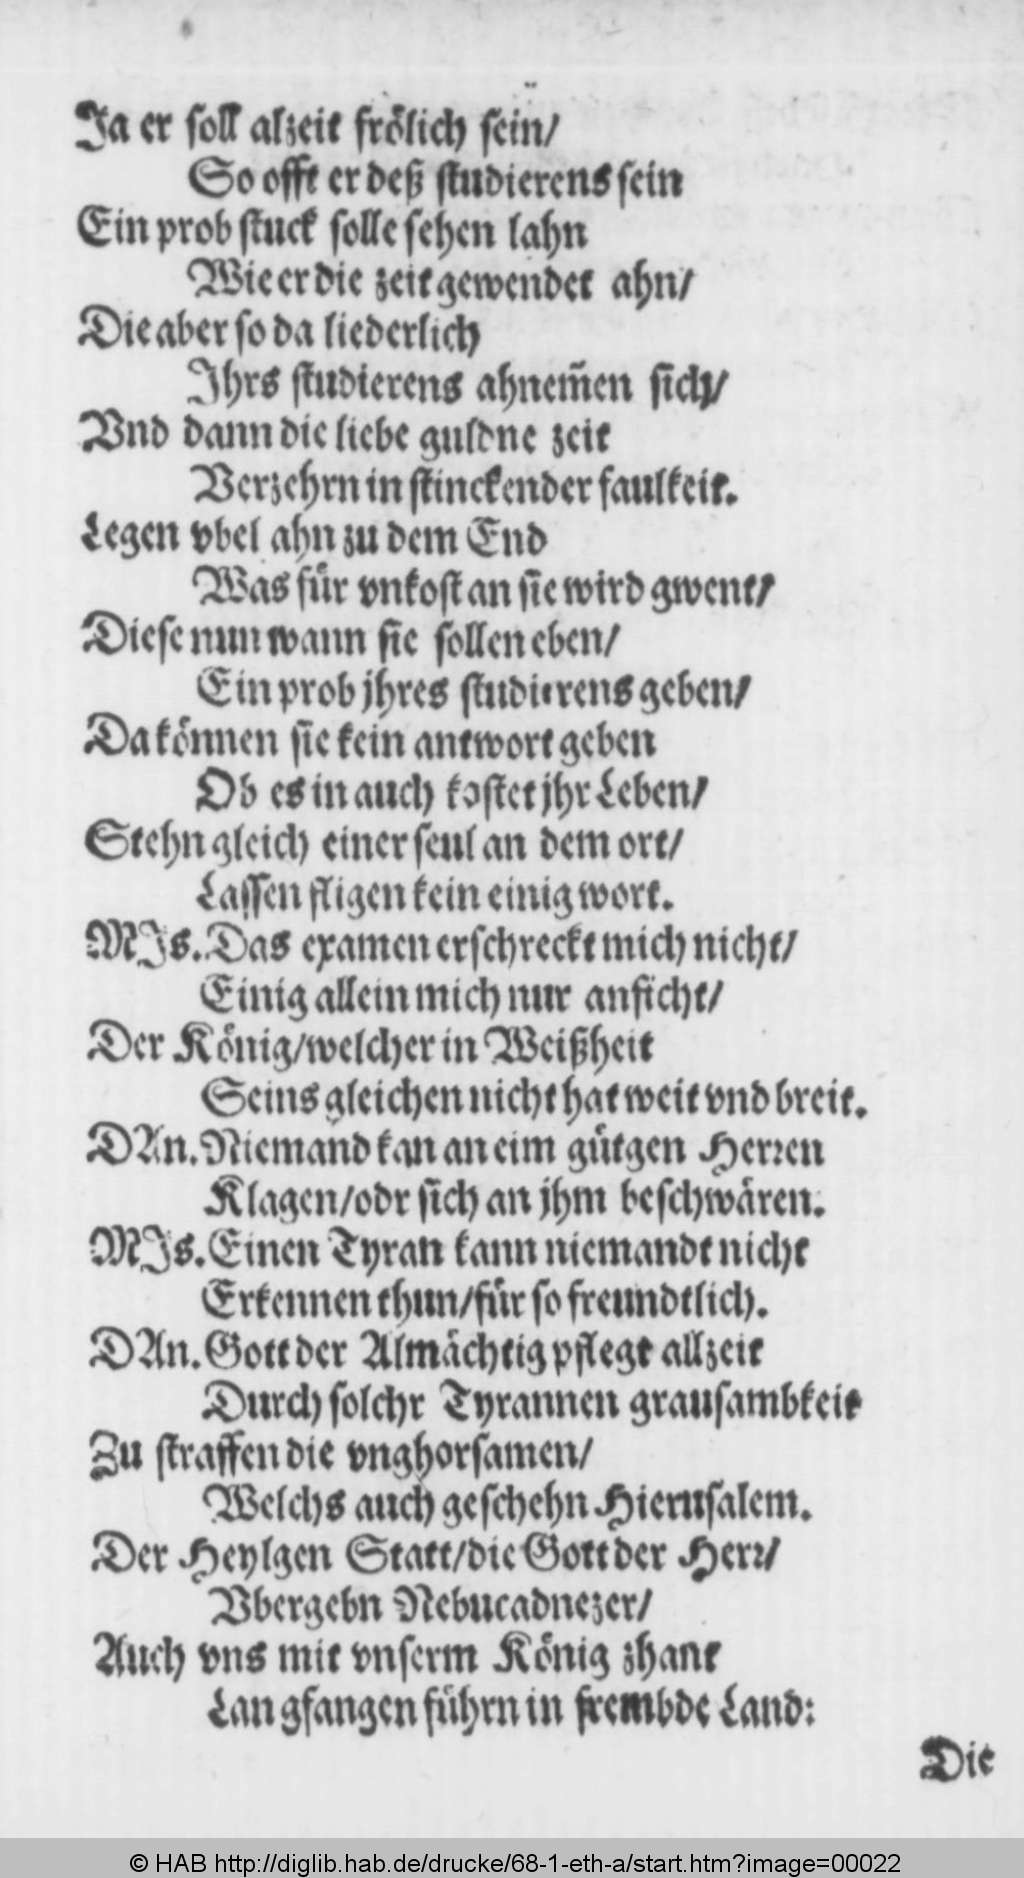 Ja er soll alzeit frölich sein/
So offt er deß studierens sein
Ein prob stuck solle sehen lahn
Wie er die zeit gewendet ahn/
Die aber so da liederlich
Ihrs studierens ahnem̃en sich/
Vnd dann die liebe guldne zeit
Verzehrn in stinckender faulkeit.
Legen vbel ahn zu dem End
Was für vnkost an sie wird gwent/
Diese nun wann sie sollen eben/
Ein prob jhres studierens geben/
Da können sie kein antwort geben
Ob es in auch kostet jhr Leben/
Stehn gleich einer seul an dem ort/
Lassen fligen kein einig wort.
MIs. Das examen erschreckt mich nicht/
Einig allein mich nur anficht/
Der König/welcher in Weißheit
Seins gleichen nicht hat weit vnd breit.
DAn. Niemand kan an eim gütgen Herren
Klagen/odr sich an jhm beschwären.
MIs. Einen Tyran kann niemandt nicht
Erkennen thun/für so freundtlich.
DAn. Gott der Almächtig pflegt allzeit
Durch solchr Tyrannen grausambkeit
Zu straffen die vnghorsamen/
Welchs auch geschehn Hierusalem.
Der Heylgen Statt/die Gott der Herr/
Vbergebn Nebucadnezer/
Auch vns mit vnserm König zhant
Lan gfangen führn in frembde Land:
Die
© HAB http://diglib.hab.de/drucke/68-1-eth-a/start.htm?image=00022